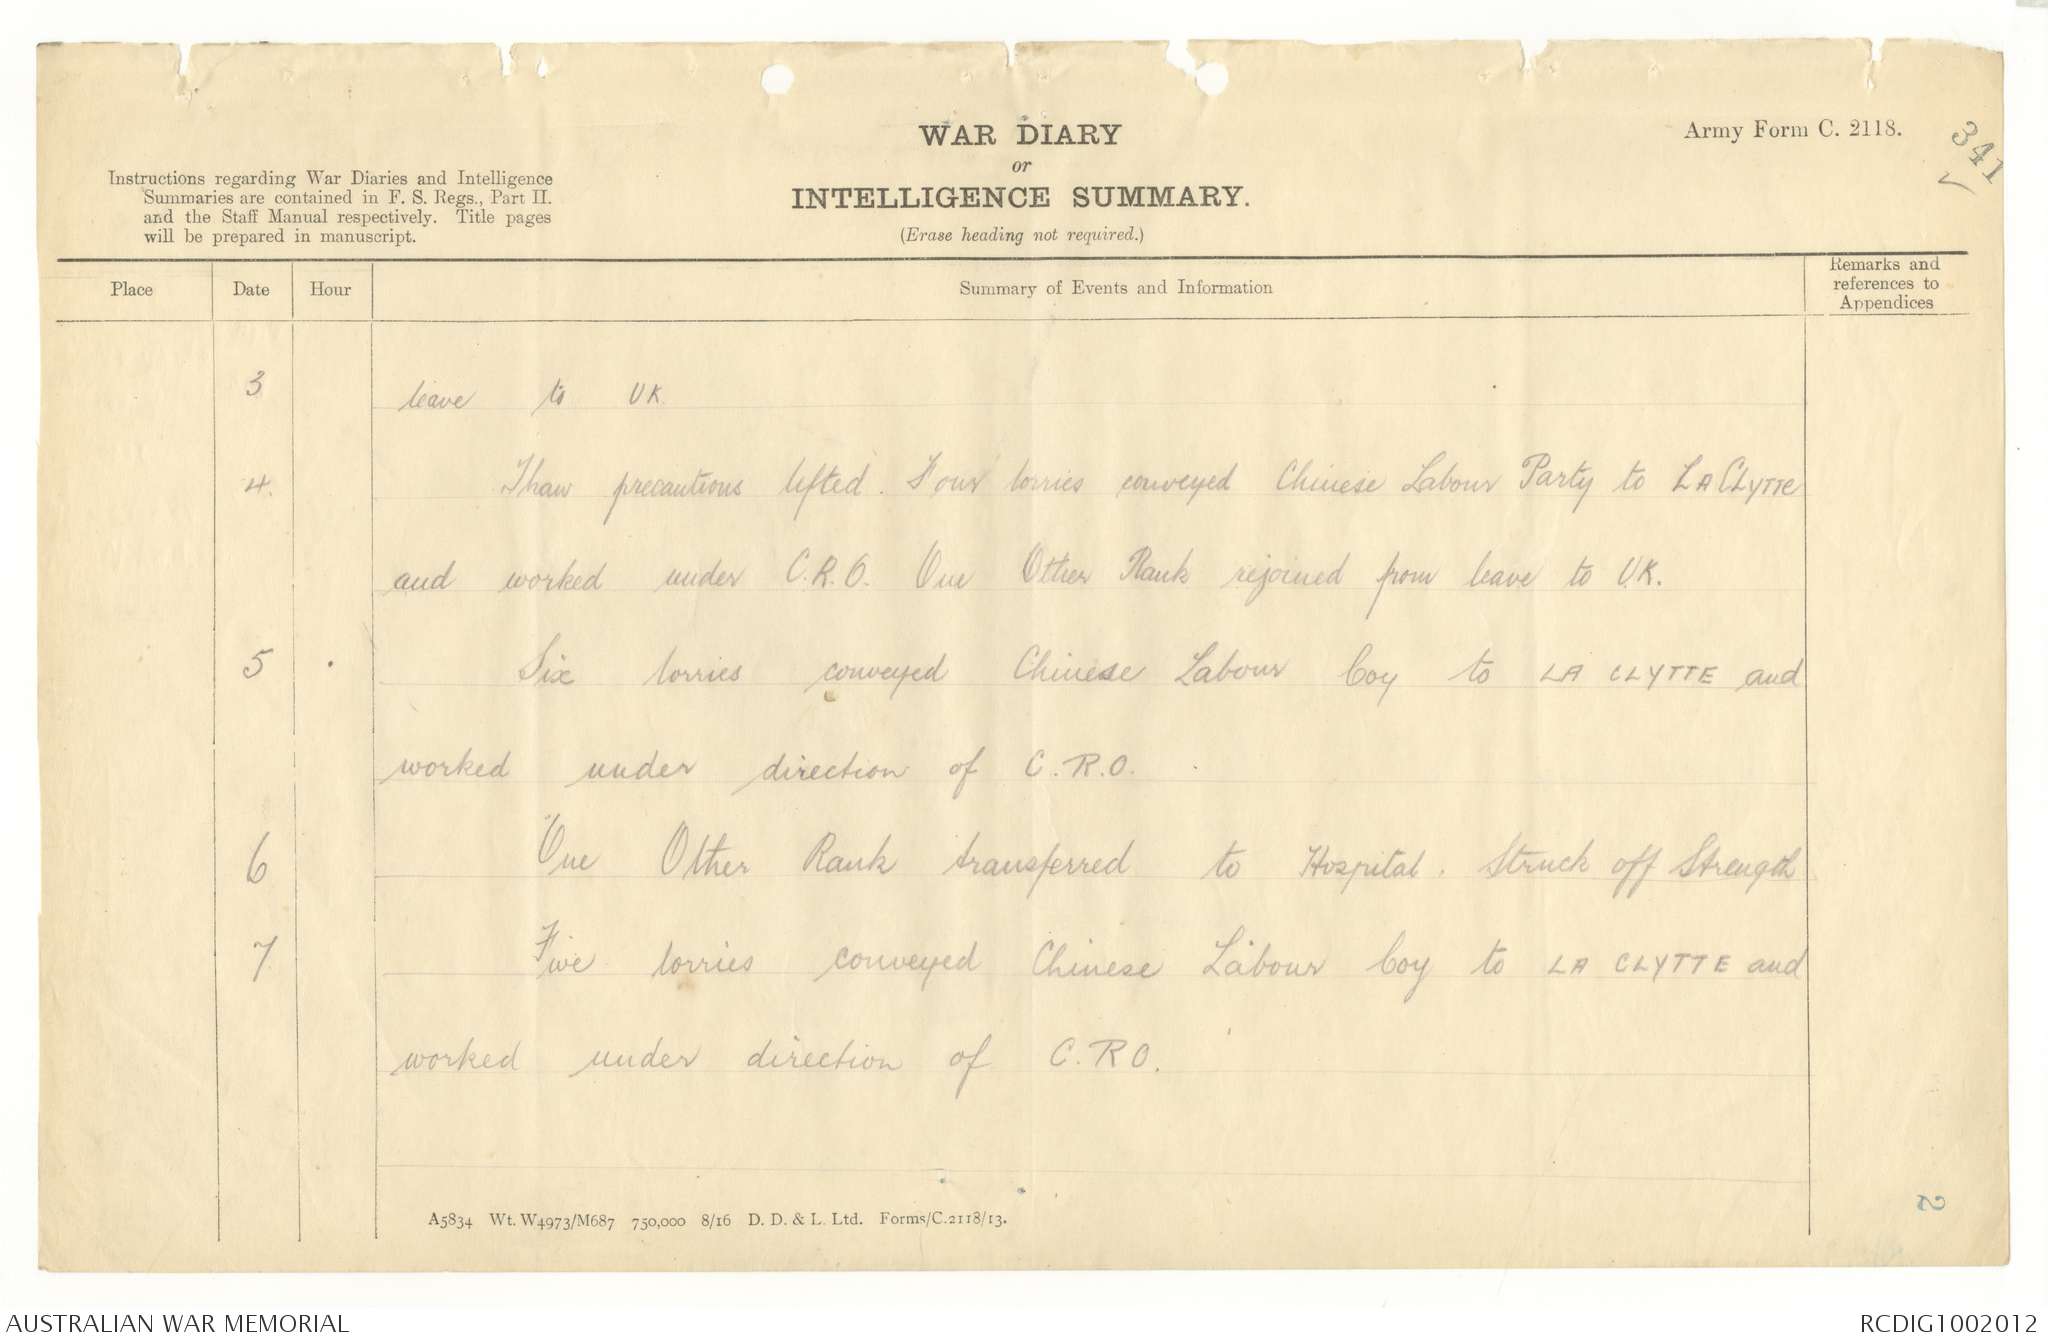 WAR DIARY
or
INTELLIGENCE SUMMARY.
(Erase heading not required.)
Army Form C. 2118.
341
Instructions regarding War Diaries and Intelligence
Summaries are contained in F. S. Regs., Part II.
and the Staff Manual respectively. Title pages
will be prepared in manuscript.
Place Date Hour Summary of Events and Information Remarks and references to Appendices
3 leave to UK
4. Thaw precautions lifted. Four lorries conveyed Chinese Labour Party to LA CLYTTE
and worked under C.R.O. One Other Rank rejoined from leave to U.K.
5 Six lorries conveyed Chinese Labour Coy to LA CLYTTE and
worked under direction of C.R.O.
6 One Other Rank transferred to Hospital. Struck off Strength
7 Five lorries conveyed Chinese Labour Coy to LA CLYTTE and
worked under direction of C.R.O.
2
A5834 Wt. W4973/M687 750,000 8/16 D. D. & L. Ltd. Forms/C.2118/13.
AUSTRALIAN WAR MEMORIAL
RCDIG1002012